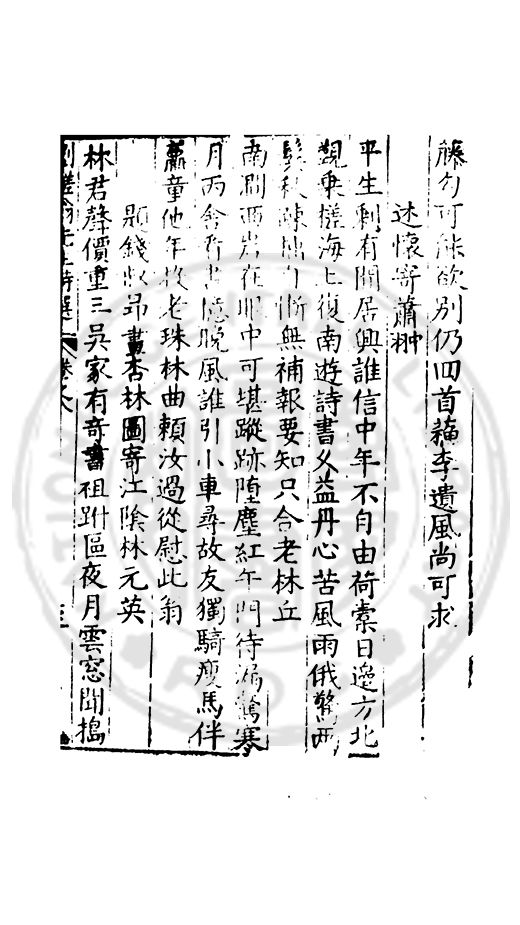 勝勾可能欲別仍回首蘓李遺風尚可求
述懷寄蕭翀
平生剩有閒居興誰信中年不自由荷橐日邊方北
觀乗槎海上復南遊詩書久益丹心苦風雨俄驚兩
鬂秋疎拙自慚無補報要知只合老林丘
南澗西岩在眼中可堪蹤跡陸塵紅午門待漏驚寒
月丙舍看書憶晚風誰引小車尋故友獨騎瘦馬伴
蕭童他年投老珠林曲頼汝過從慰此翁
題錢叔昂畫杏林圖寄江隂林元英
林君聲價重三吳家有竒書祖跗區夜月雲窓聞搗
卷之八